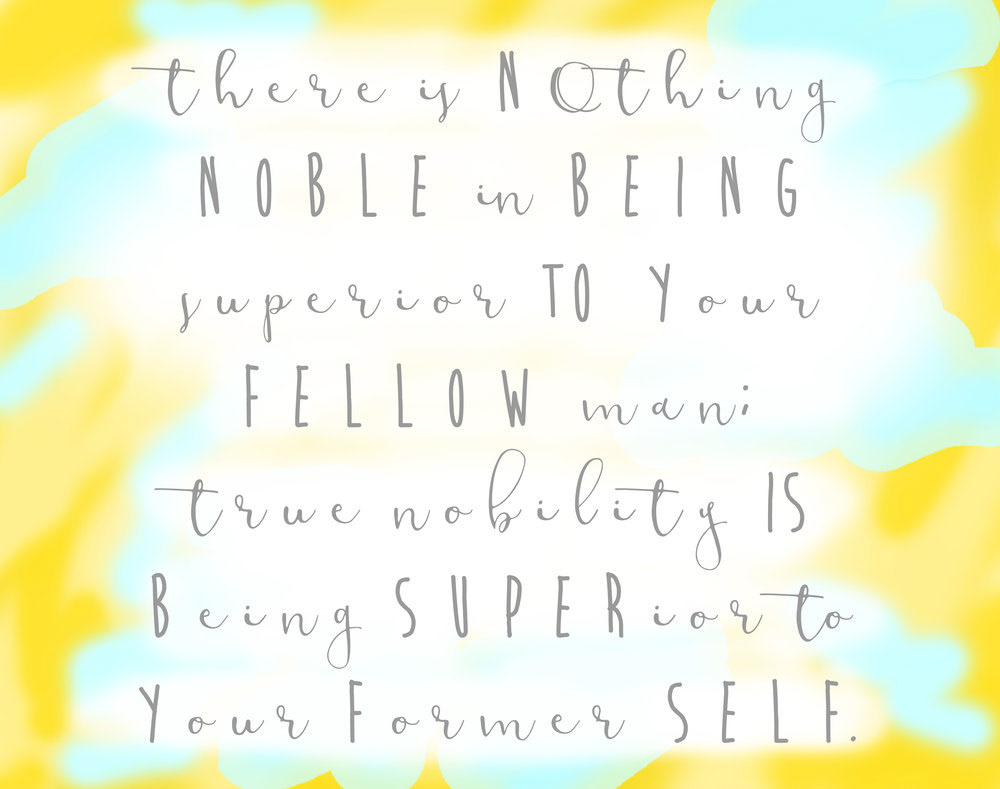 there is NOthing
NOBLE in BEING
superior TO Your
FELLOW man;
true nobility IS
Being SUPERior to
Your Former SELF.